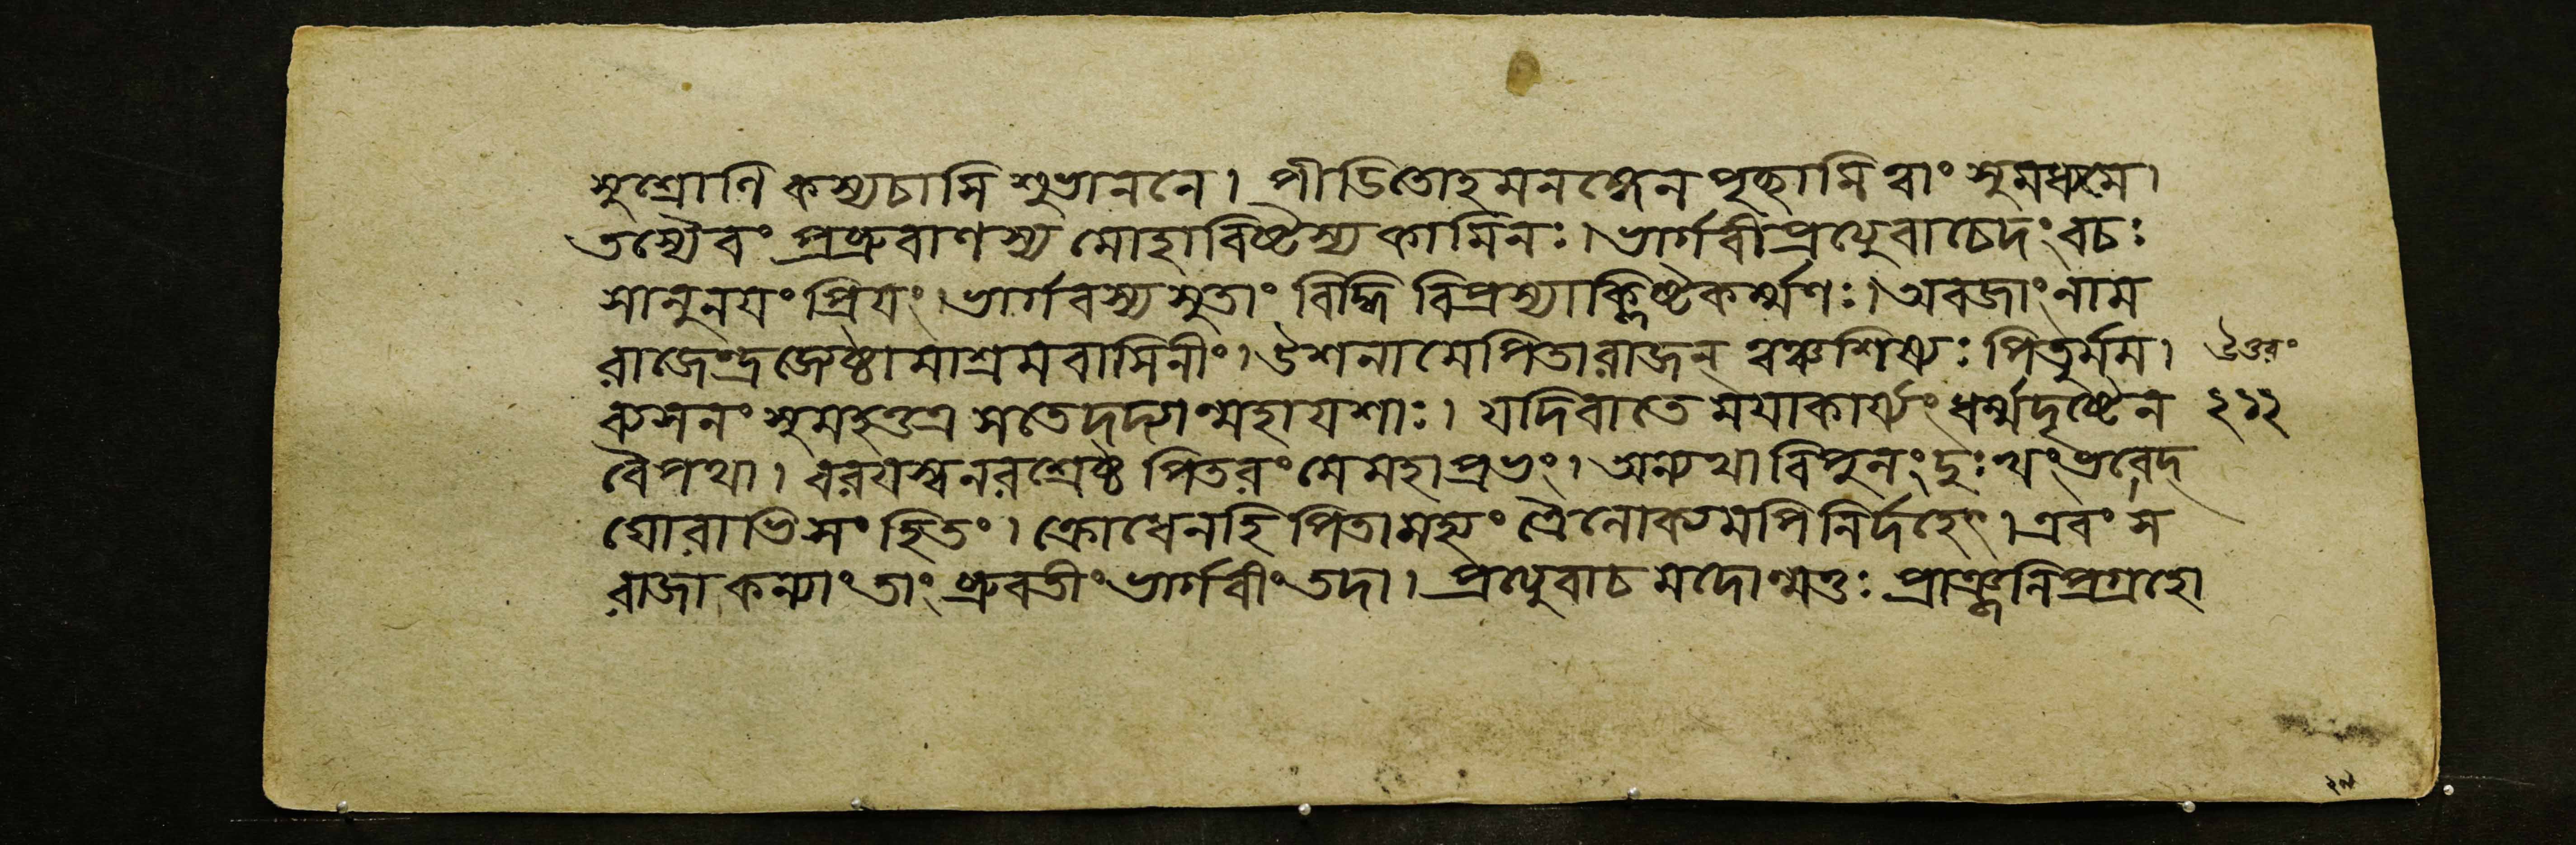 সুশ্রোণি কস্যচাসি শুভাননে। পীডিতোহমনঙ্গেন পৃচ্ছামি ত্বাং সুমধ্যমে।
তস্যৈবং প্রব্রুবাণস্য মোহাবিষ্টস্য কামিনঃ। ভার্গবীপ্রত্যুবাচেদং বচঃ
সানুনযং প্রিযং। ভার্গবস্যসুতাং বিদ্ধি বিপ্রস্যাক্লিষ্টকর্ম্মণঃ। অরজাং নাম
রাজেন্দ্রজ্যেষ্ঠামাশ্রমবাসিনীং। উশনামেপিতারাজন্ ত্বঞ্চশিষ্যঃ পিতুর্মম।
ব্যসনং সুমহত্তত্র সতেদদ্যান্মহাযশাঃ। যদিবাতে মযাকার্য্যং ধর্ম্মদৃষ্টেন
বৈপথা। বরযস্বনরশ্রেষ্ঠ পিতরং মেমহাপ্রভং। অন্যথা বিপুলং দুঃখং ভবেদ্
ঘোরাভিসংহিতং। ক্রোধেনহি পিতামহ্যং ত্রৈলোক্যমপি নির্দহেৎ। এবং স
রাজা কন্যাং তাং ব্রুবতীং ভার্গবীং তদা। প্রত্যুবাচ মদোন্মত্তঃ প্রাঞ্জলিপ্রগ্রহো
উত্তরং
২১২